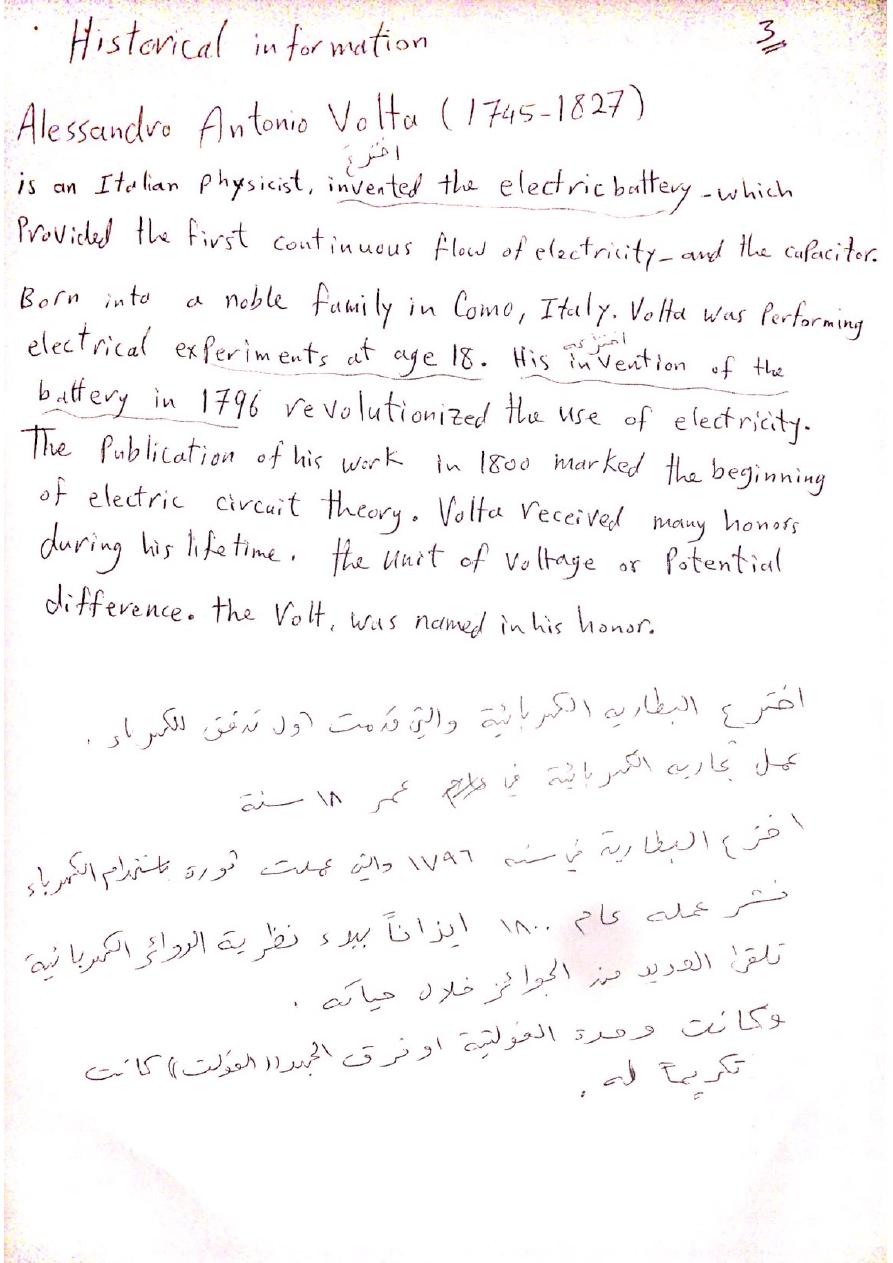 Historical information
3
Alessandro Antonio Volta (1745-1827)
اخترع
is an Italian Physicist, invented the electric battery - which
Provided the first continuous flow of electricity - and the capacitor.
Born into a noble family in Como, Italy. Volta was Performing
اختراعه
electrical experiments at age 18. His invention of the
battery in 1796 revolutionized the use of electricity.
The Publication of his work in 1800 marked the beginning
of electric circuit theory. Volta received many honors
during his lifetime. the unit of voltage or Potential
difference. the Volt, was named in his honor.
اخترع البطارية الكهربائية والتي قدمت اول تدفق للكهرباء .
عمل تجاربه الكهربائية في عمر ١٨ سنة
اخترع البطارية في سنه ١٧٩٦ والتي عملت ثورة باستخدام الكهرباء
نشر عمله عام ١٨٠٠ ايذاناً ببدء نظرية الدوائر الكهربائية
تلقى العديد من الجوائز خلال حياته .
وكانت وحدة الفولتية او فرق الجهد ((الفولت)) كانت
تكريماً له .